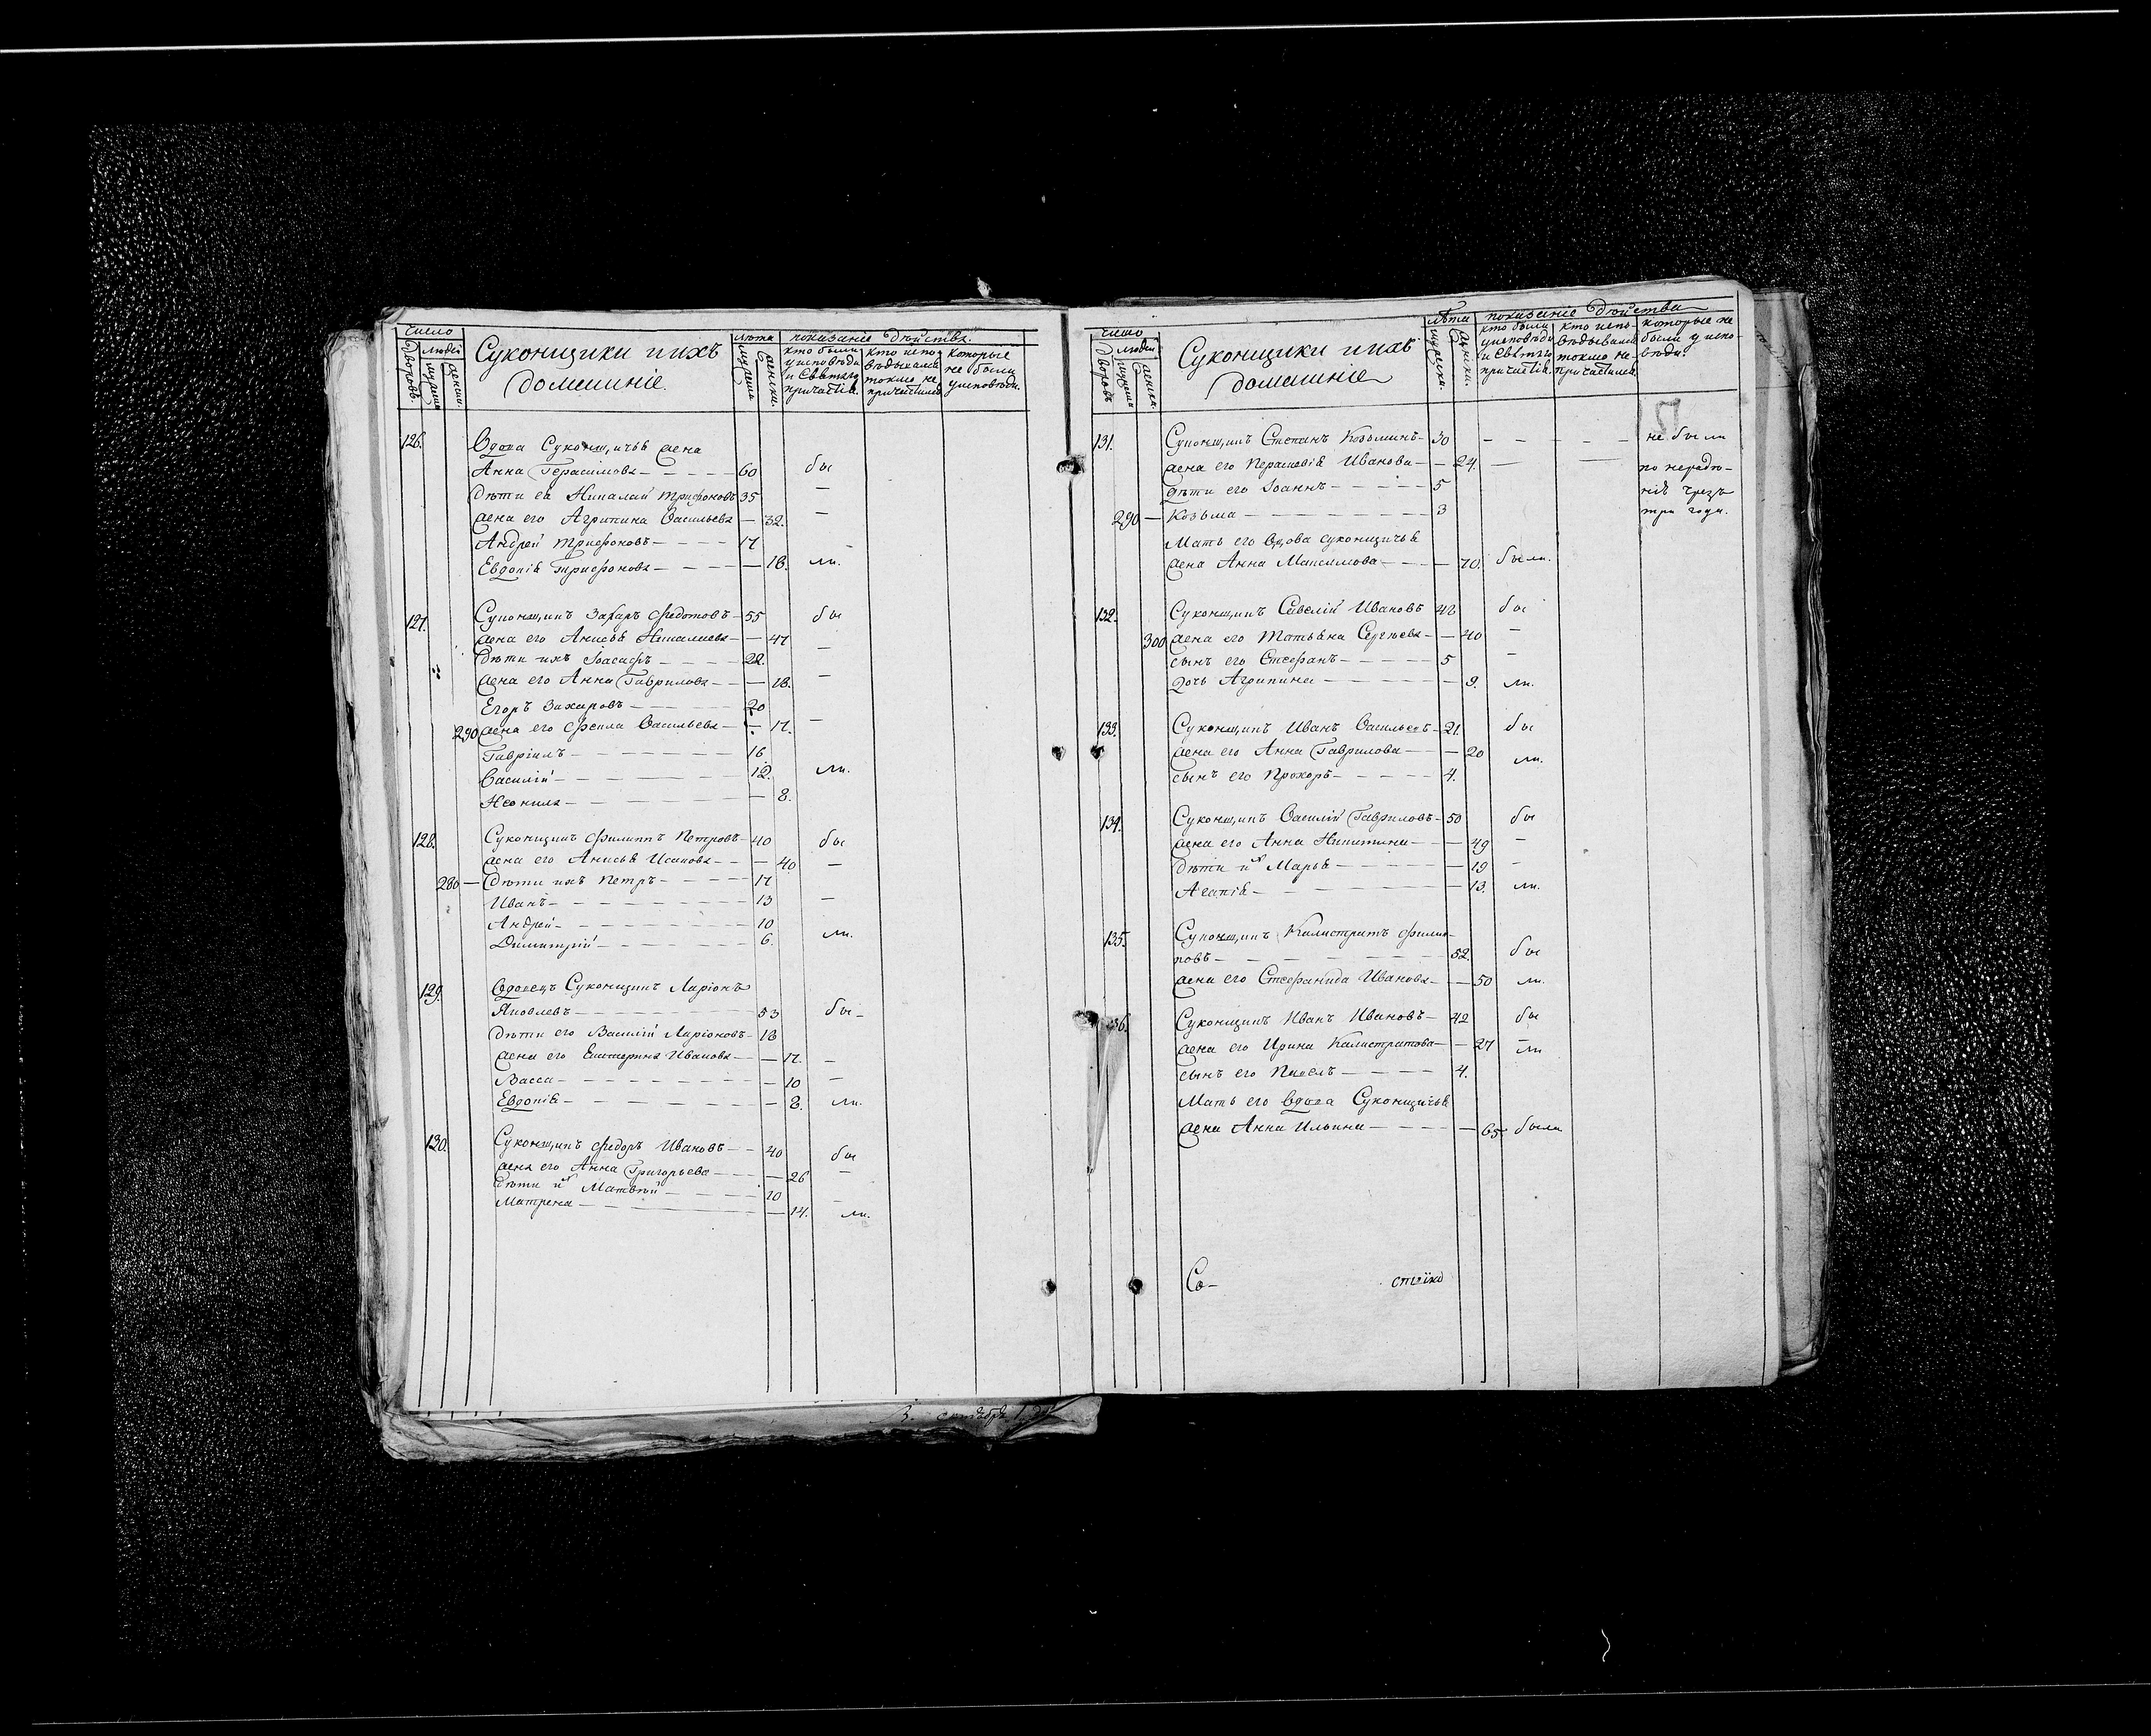 число людей лѣта показаніе дѣйства.
дворовъ. мужеска женска. Суконщики ихъ мужеска женска. кто были кто испо- которые
домашніе. у исповѣди вѣдывался не были
и Святаго токмо не у исповѣди.
причастія. причастился
126. Вдова Суконщичья жена
Анна Герасимова — 60 бы
Дѣти ея Николай Трифоновъ 35 —
жена его Агрипина Васильева — 32. —
Андрей Трифоновъ — 17
Евдокія Трифонова — 18. ли.
127. Суконщикъ Захаръ Федотовъ — 55 бы
жена его Анисья Николаева — 47
дѣти ихъ Іоасафъ — 22. —
жена его Анна Гаврилова — 18. —
Егоръ Захаровъ — 20
290 жена его Фекла Васильева — 17. —
Гавріилъ — 16
Василій — 12. ли.
Неонила — 8.
128. Суконщикъ Филиппъ Петровъ — 40 бы
жена его Анисья Исакова — 40 —
280 — Дѣти ихъ Петръ — 17
Иванъ — 13 —
Андрей — 10
Димитрій — 6. ли.
129. Вдовецъ Суконщикъ Ларіонъ
Яковлевъ — 53 бы —
дѣти его Василій Ларіоновъ — 18
жена его Екатерина Иванова — 17. —
Васса — 10 —
Евдокія — 8. ли.
130. Суконщикъ Федоръ Ивановъ — 40 бы
жена его Анна Григорьева — 26 —
Дѣти их Матвѣй — 10
Матрена — 14. ли.
число людей лѣта показаніе дѣйства
дворовъ мужеска женска. Суконщики ихъ мужеска. женски. кто были кто испо- которые не
домашніе у исповѣди вѣдывался были у испо-
и Святаго токмо не вѣди.
причастія. причастился
131. Суконщикъ Степанъ Козьминъ — 30 — — — — не были
жена его Перасковія Иванова — 24. — — по нерадѣ-
дѣти его Іоаннъ — 5 нію чрезъ
290 — Козьма — 3 три года.
Мать его вдова суконщичья
жена Анна Максимова — 70. были.
132. Суконщикъ Савелій Ивановъ 42 бы
300 жена его Татьяна Сергѣева — 40 —
сынъ его Стефанъ — 5 —
дочь Агрипина — 9. ли.
133. Суконщикъ Иванъ Васильевъ — 21. бы
жена его Анна Гаврилова — 20 ли.
сынъ его Прохоръ — 4.
134. Суконщикъ Василій Гавриловъ — 50 бы
жена его Анна Никитина — 49 —
дѣти их Марья — 19 —
Агапія — 13. ли.
135. Суконщикъ Калистратъ Филип-
повъ — 52. бы
жена его Стефанида Иванова — 50 ли.
136. Суконщикъ Иванъ Ивановъ — 42 бы
жена его Ирина Калистратова — 27 ли
сынъ его Павелъ — 4.
Мать его вдова Суконщичья
жена Анна Ильина — 65. была
Со-